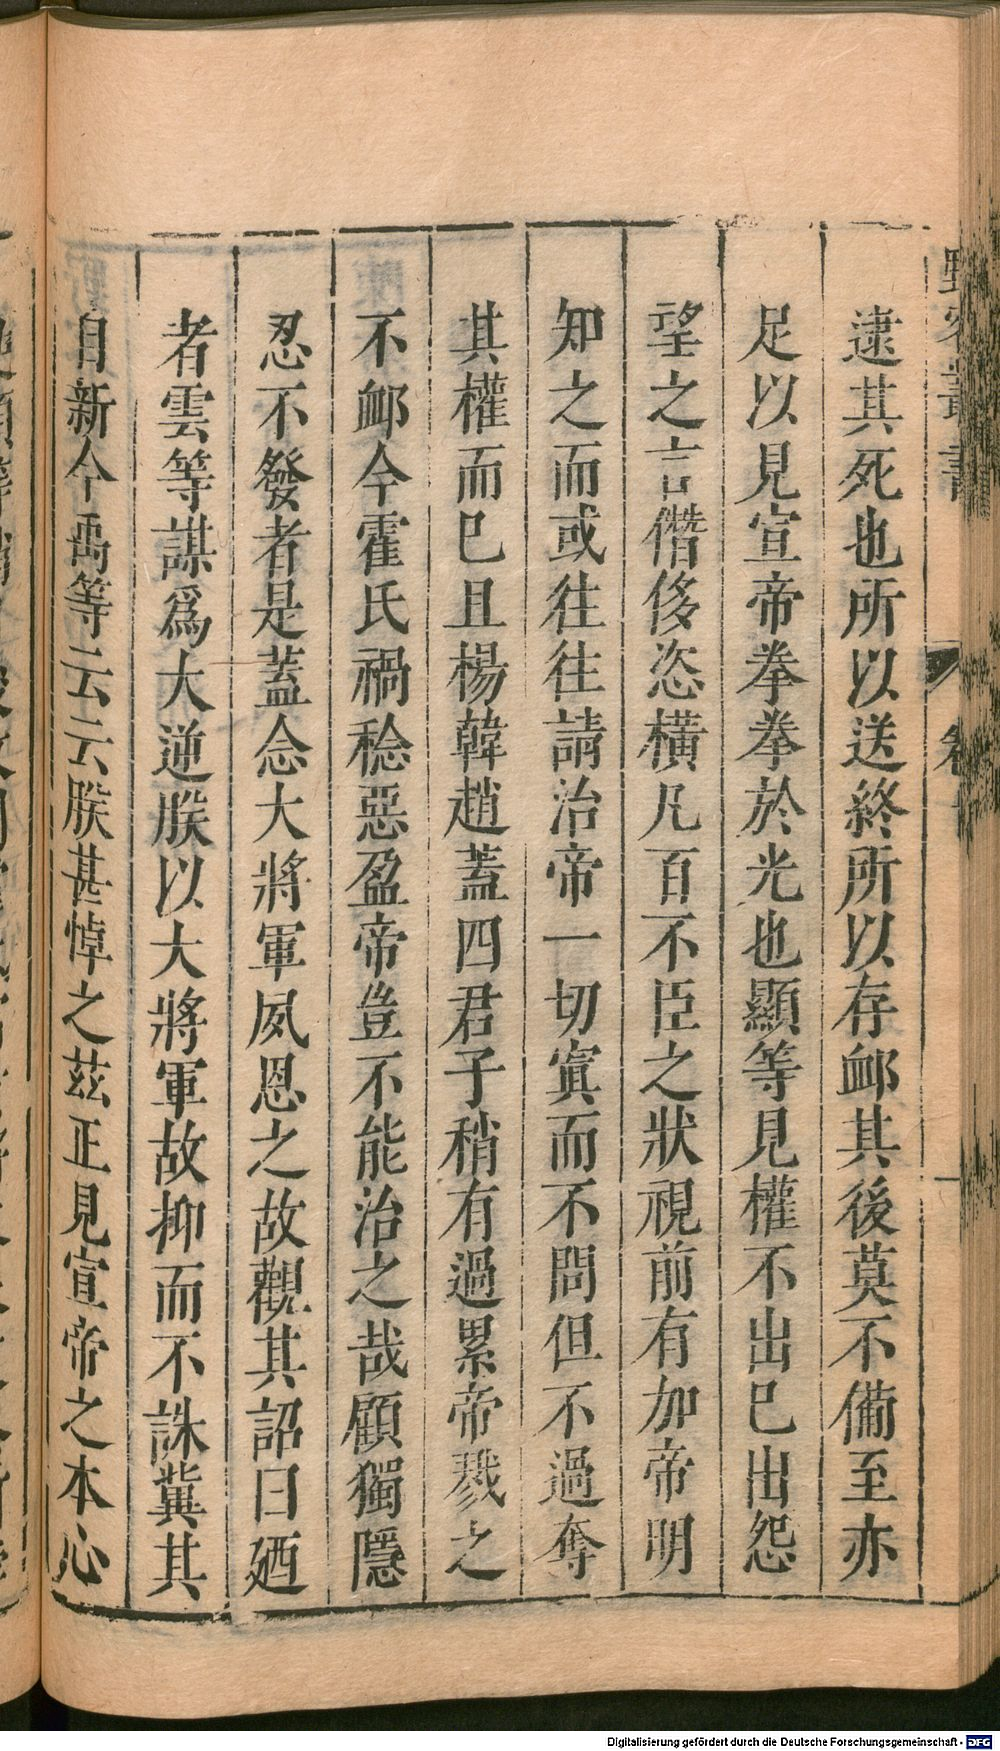 野客叢書
卷
逮其死也所以送終所以存卹其後莫不備至亦
足以見宣帝拳拳於光也顯等見權不出巳出怨
望之言僭侈恣橫凡百不臣之狀視前有加帝明
知之而或徃徃請治帝一切寘而不問但不過奪
其權而巳且楊韓趙葢四君子稍有過累帝戮之
不卹今霍氏禍稔惡盈帝豈不能治之哉顧獨隱
忍不發者是葢念大將軍夙恩之故觀其詔曰廼
者雲等謀爲大逆朕以大將軍故抑而不誅冀其
自新今禹等云云朕甚悼之茲正見宣帝之本心
Digitalisierung gefördert durch die Deutsche Forschungsgemeinschaft - DFG